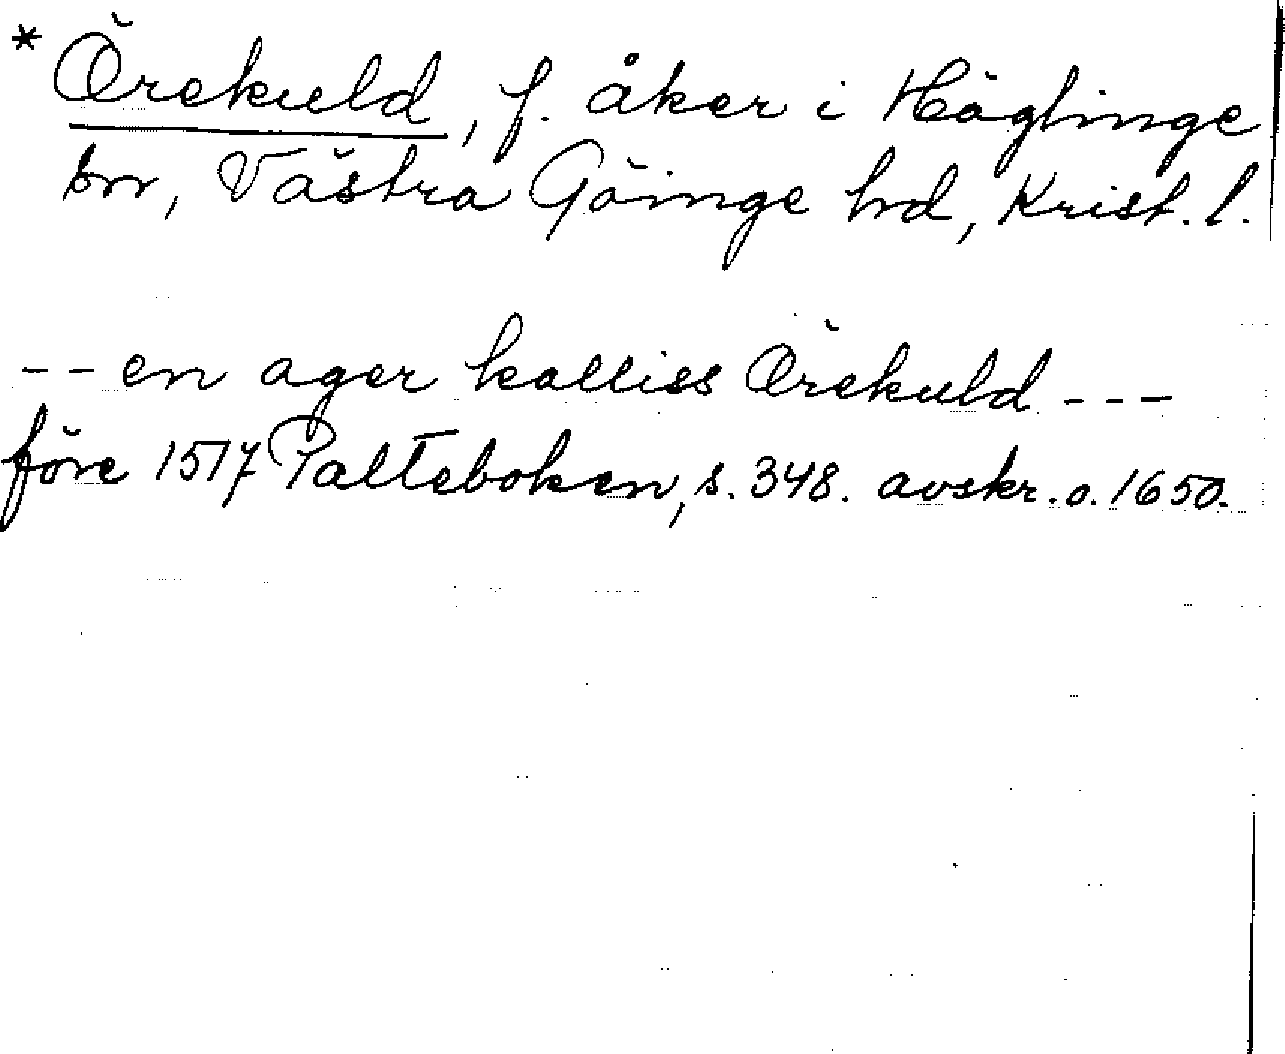 * Örekuld, f. åker i Häglinge
sn, Västra Göinge hd, Krist. l.
-- en ager kalliss Örekuld ---
före 1517 Palteboken, s. 348. avskr. o. 1650.